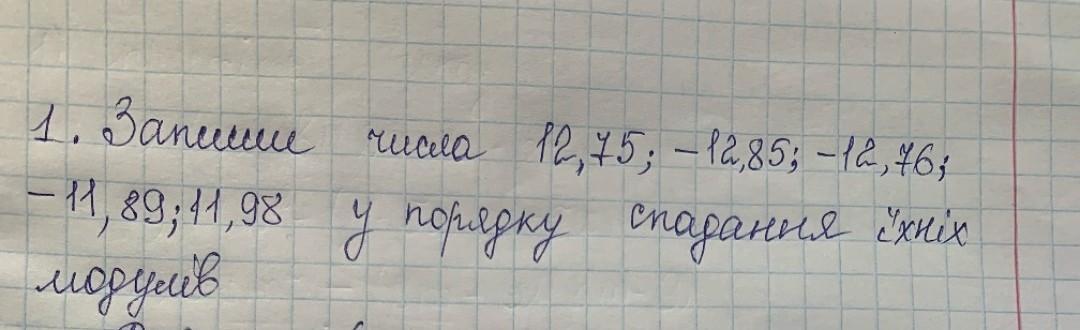 1. Запиши числа 12,75; -12,85; -12,76;
-11,89; 11,98 у порядку спадання їхніх
модулів